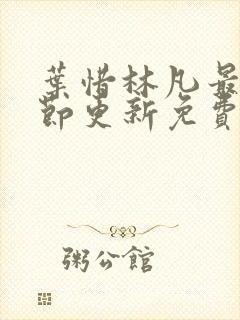 葉惜林凡最
節更新免費
粥公館